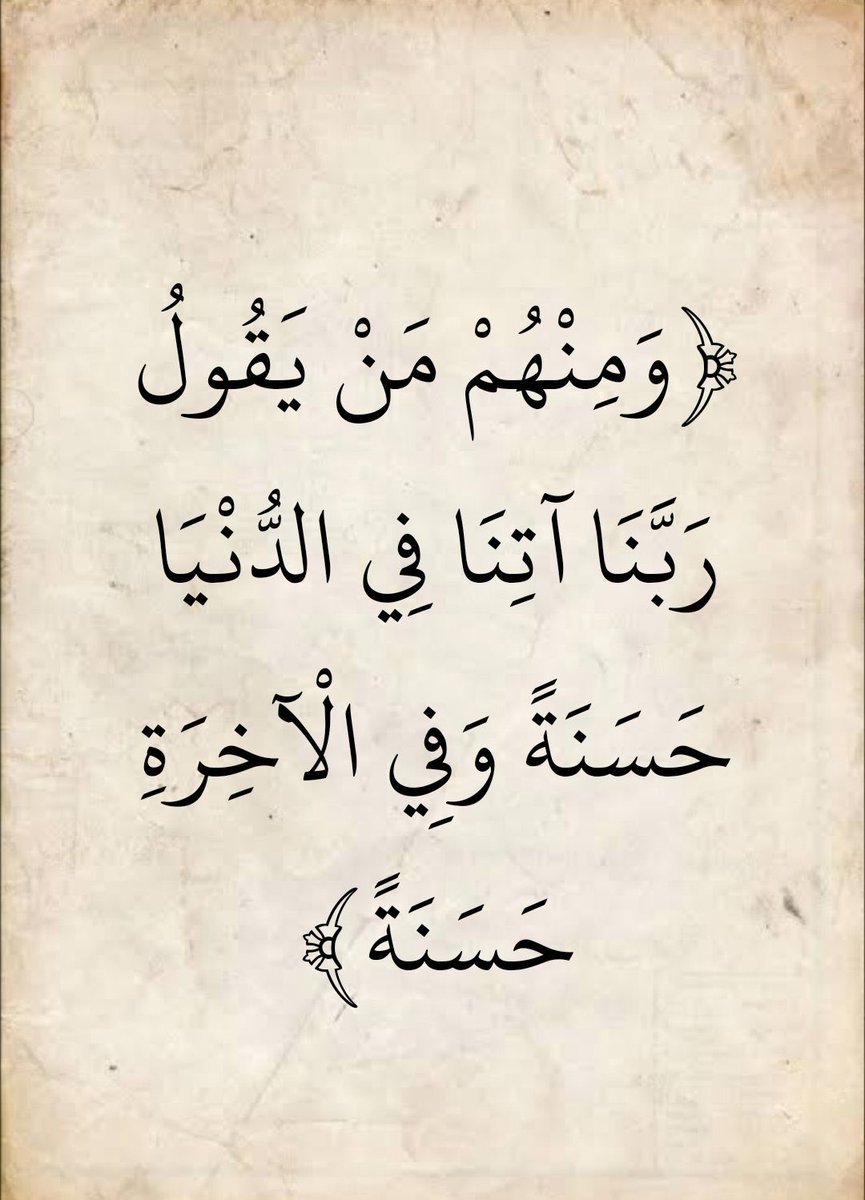 ﴿وَمِنْهُمْ مَنْ يَقُولُ
رَبَّنَا آتِنَا فِي الدُّنْيَا
حَسَنَةً وَفِي الْآخِرَةِ
حَسَنَةً﴾